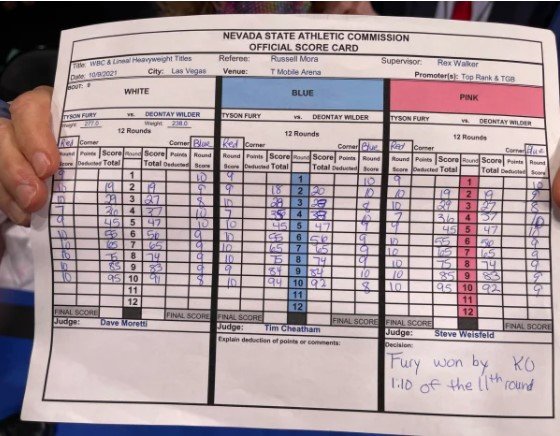 NEVADA STATE ATHLETIC COMMISSION
OFFICIAL SCORE CARD
Title: WBC & Lineal Heavyweight Titles Referee: Russell Mora Supervisor: Rex Walker
Date: 10/9/2021 City: Las Vegas Venue: T Mobile Arena Promoter(s): Top Rank & TGB
BOUT:
WHITE BLUE PINK
TYSON FURY vs. DEONTAY WILDER TYSON FURY vs. DEONTAY WILDER TYSON FURY vs. DEONTAY WILDER
Weight: 277.0 Weight: 238.0
12 Rounds 12 Rounds 12 Rounds
Red Corner Corner Blue Red Corner Corner Blue Red Corner Corner Blue
Round Score Points Deducted Score Total Round Score Total Points Deducted Round Score Round Score Points Deducted Score Total Round Score Total Points Deducted Round Score Round Score Points Deducted Score Total Round Score Total Points Deducted Round Score
1 10 9 1 10 9 1 10
10 19 2 19 9 18 2 20 10 19 2 19 9
10 29 3 27 8 10 28 3 28 8 10 29 3 27 8
7 36 4 37 10 7 4 10 7 36 4 37 10
9 45 5 47 10 10 45 5 47 9 9 45 5 47 10
10 55 6 56 9 10 55 6 56 9 10 55 6 56 9
10 65 7 65 9 10 65 7 65 9 10 65 7 65 9
10 75 8 74 9 10 75 8 74 9 10 75 8 74 9
10 85 9 83 9 9 84 9 84 10 10 85 9 83 9
10 95 10 91 8 10 94 10 92 8 10 95 10 92 9
11 11 11
12 12 12
FINAL SCORE FINAL SCORE FINAL SCORE FINAL SCORE FINAL SCORE FINAL SCORE
Judge: Dave Moretti Judge: Tim Cheatham Judge: Steve Weisfeld
Explain deduction of points or comments: Decision:
Fury won by KO
1:10 of the 11th round